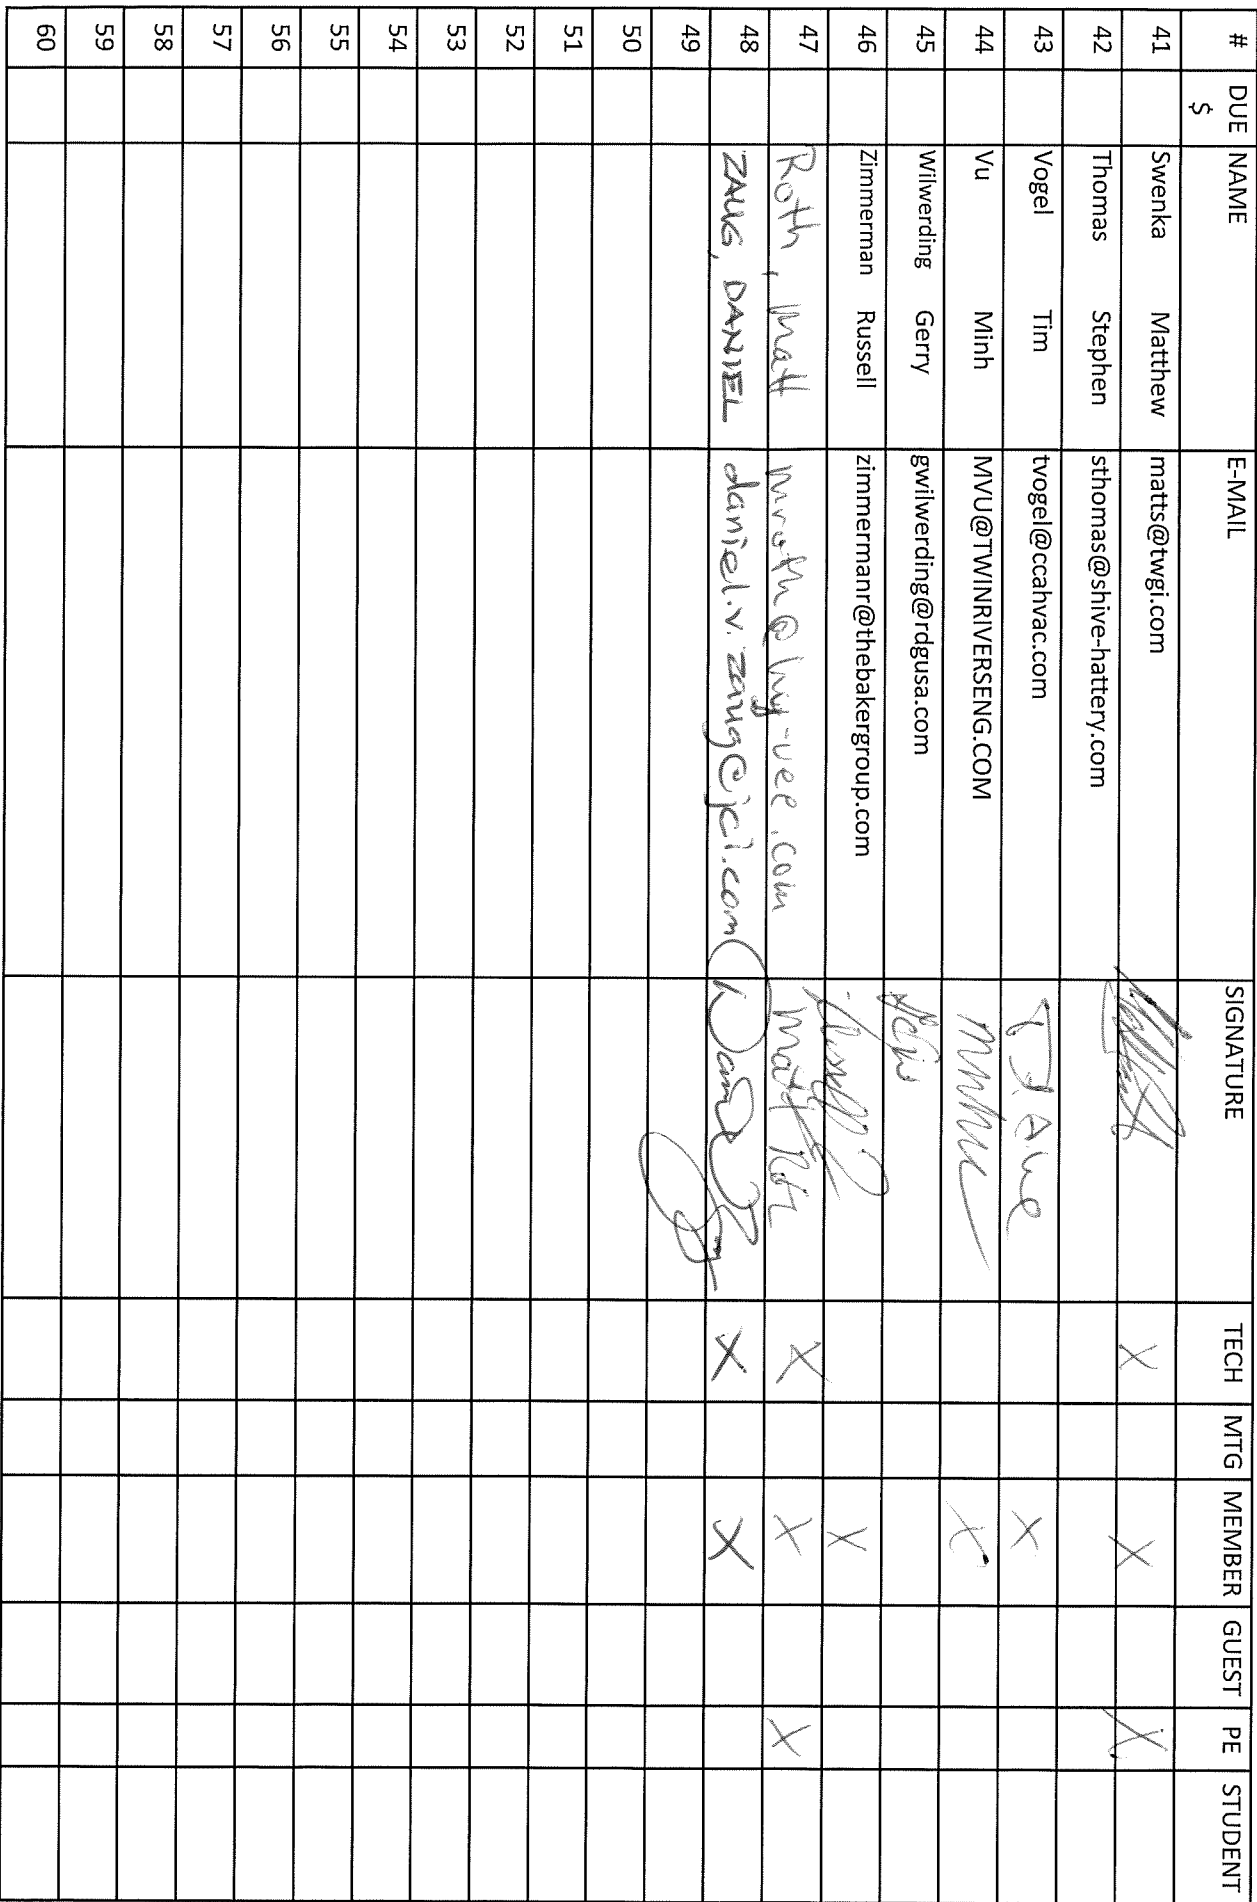 # DUE $ NAME E-MAIL SIGNATURE TECH MTG MEMBER GUEST PE STUDENT
41 Swenka Matthew matts@twgi.com X X X
42 Thomas Stephen sthomas@shive-hattery.com
43 Vogel Tim tvogel@ccahvac.com X
44 Vu Minh MVU@TWINRIVERSENG.COM X
45 Wilwerding Gerry gwilwerding@rdgusa.com
46 Zimmerman Russell zimmermanr@thebakergroup.com X
47 Roth, Matt mroth@hy-vee.com Matt X X X
48 ZAUG, DANIEL daniel.v.zaug@jci.com X X
49
50
51
52
53
54
55
56
57
58
59
60